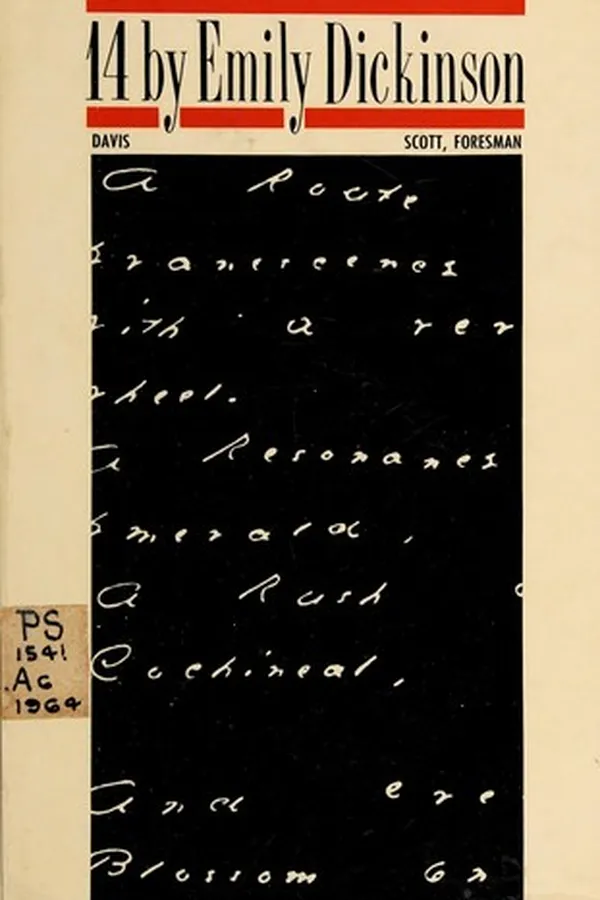 14 by Emily Dickinson
DAVIS SCOTT, FORESMAN
A Route
Evanescence
With a rev
Wheel.
A Resonance
Emerald,
A Rush o
Cochineal,
And eve
Blossom on
PS
1541
.A6
1964